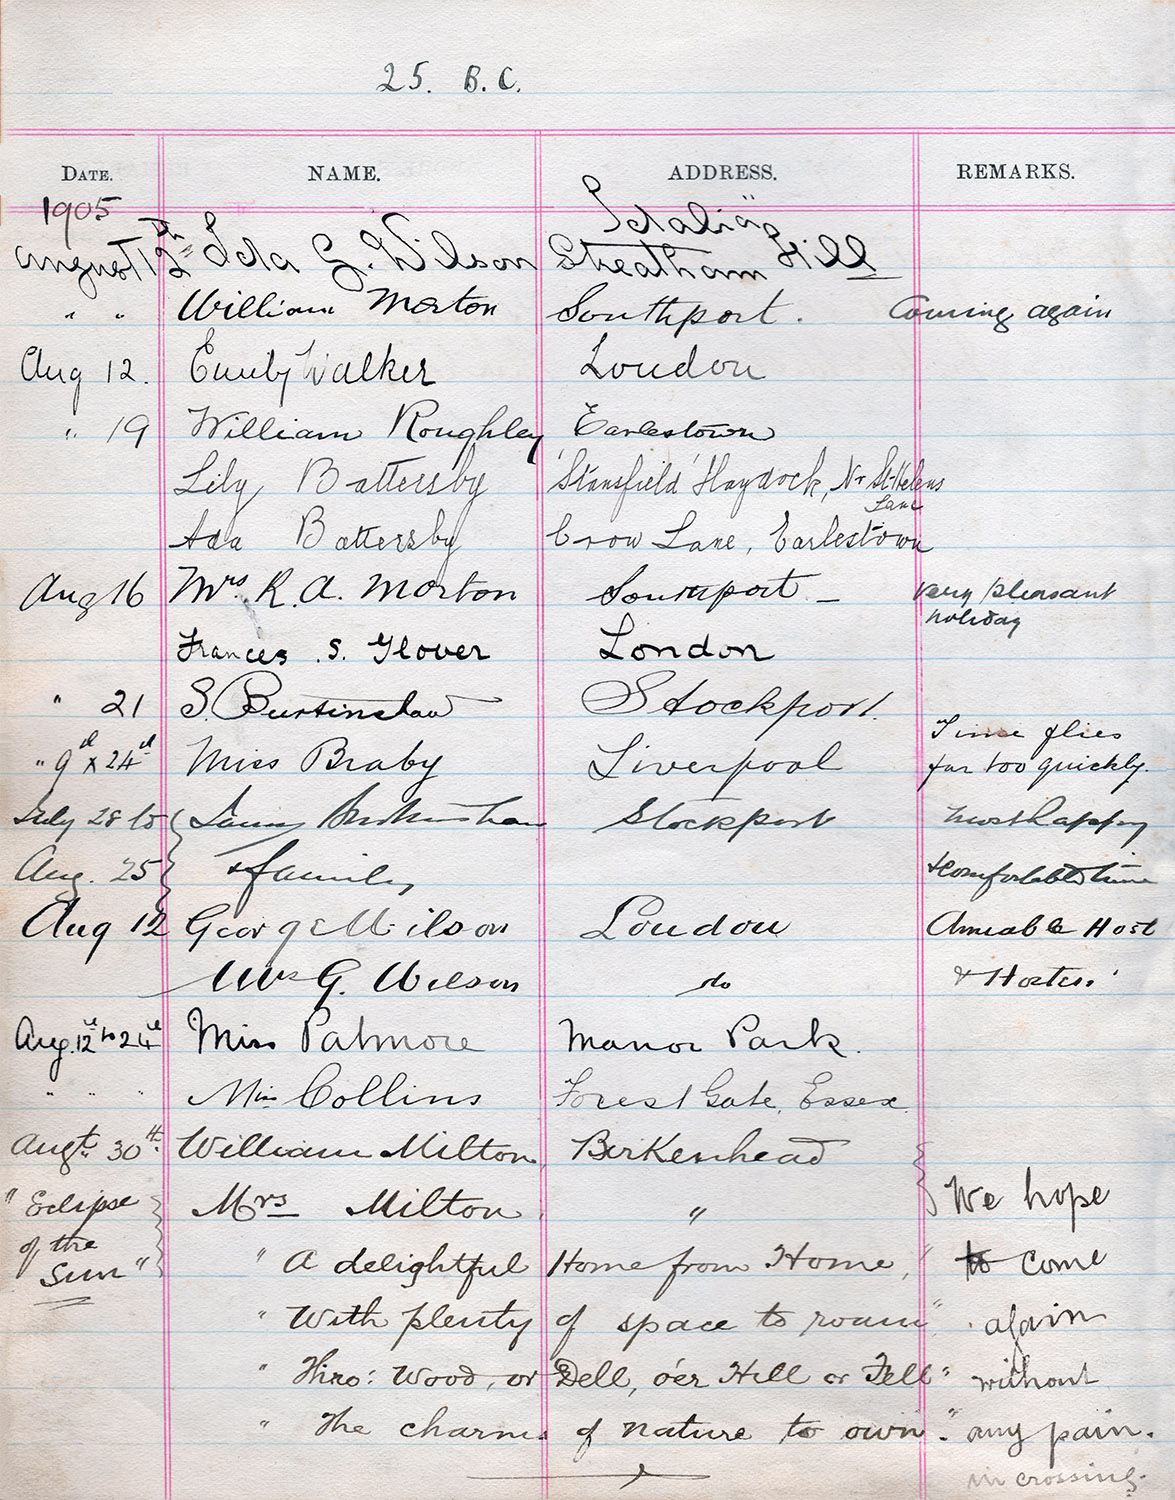 25. B.C.
DATE. NAME. ADDRESS. REMARKS.
1905
August 12th Ida G. Wilson "Idalia" Streatham Hill
" " William Morton Southport. Coming again
Aug 12. Emily Walker London
" 19 William Roughley Earlestown
Lily Battersby 'Stansfield' Haydock, Nr St Helens
Lane
Ada Battersby Crow Lane, Earlestown
Aug 16 Mrs. R. A. Morton Southport — very pleasant
holiday
Frances S. Glover London
" 21 S. Burtinshaw Stockport.
Time flies
" 9th x 24th Miss Braby Liverpool far too quickly.
July 28 to Burtinshaw Stockport most happy
Aug. 25 & family & comfortable time
Aug 12 George Wilson London Amiable Host
Mrs G. Wilson do & Hostess!
Aug. 12th to 24th Miss Patmore Manor Park.
" " " Miss Collins Forest Gate, Essex.
Augt. 30th. William Milton, Birkenhead
"Eclipse Mrs Milton, " We hope
of the "A delightful Home from Home," to come
Sun"
"With plenty of space to roam" again
"Thro: Wood, or Dell, o'er Hill or Fell" without
"The charms of nature to own." any pain.
in crossing.